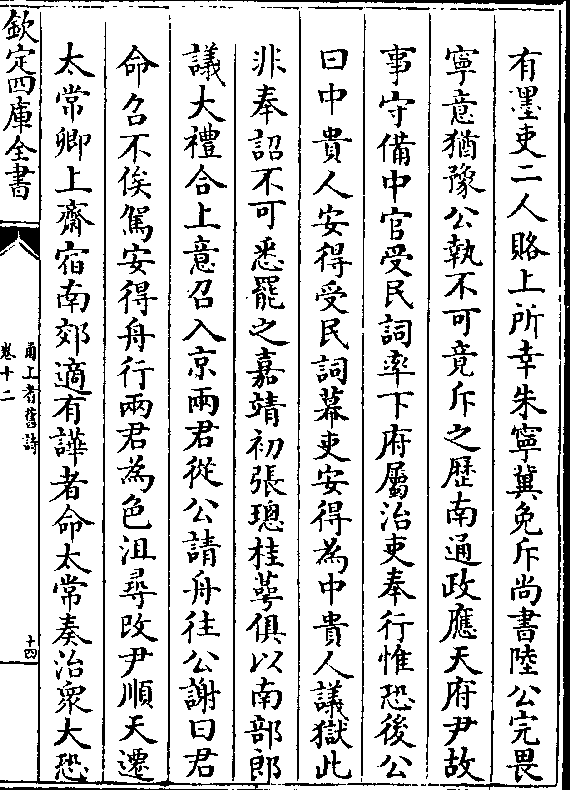 有墨吏二人賂上所幸朱寧冀免斥尚書陸公完畏
寧意猶豫公執不可竟斥之歴南通政應天府尹故
事守備中官受民詞率下府屬治吏奉行惟恐後公
曰中貴人安得受民詞幕吏安得為中貴人議獄此
非奉詔不可悉罷之嘉靖初張璁桂萼俱以南部郎
議大禮合上意召入京兩君從公請舟往公謝曰君
命召不俟駕安得舟行兩君為色沮尋改尹順天遷
太常卿上齋宿南郊適有譁者命太常奏治衆大恐
欽定四庫全書
甬上耆舊詩
卷十二
十四